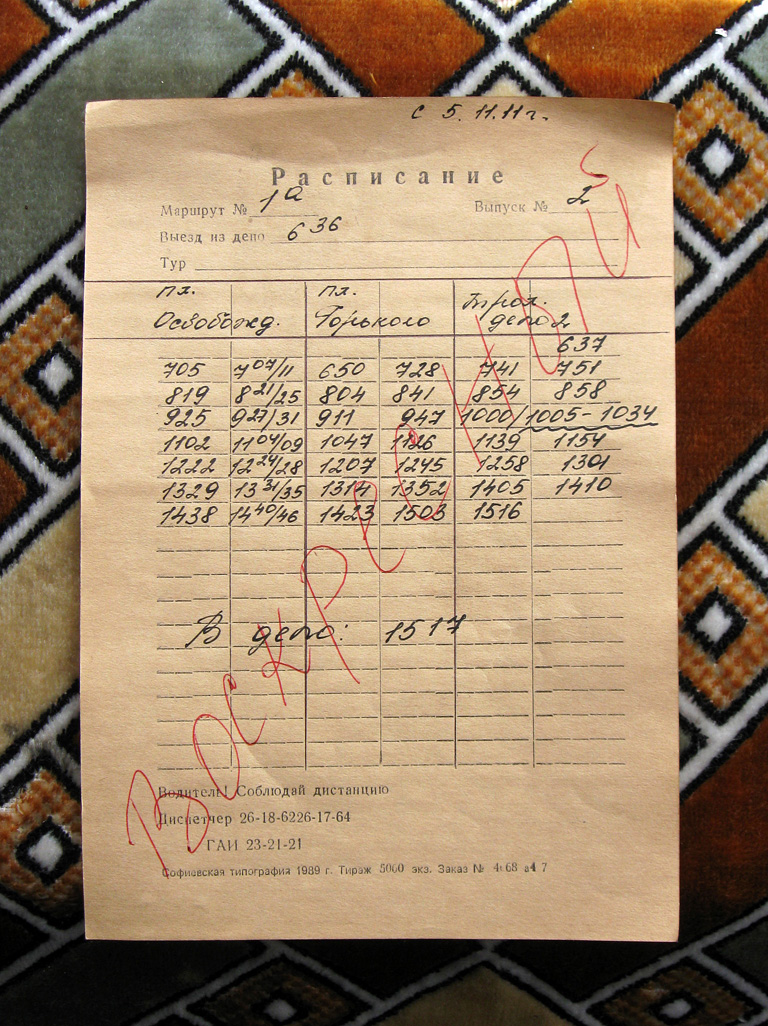 с 5.11.11г.
Расписание
Маршрут № 1а Выпуск № 2
Выезд из депо 6 36
Тур
пл. Освобожд. пл. Горького трол. депо 2
637
705 7 07/11 650 728 741 751
819 8 21/25 804 841 854 858
925 9 27/31 911 947 1000/1005-1034
1102 11 04/09 1047 1126 1139 1154
1222 12 24/28 1207 1245 1258 1301
1329 13 31/35 1314 1352 1405 1410
1438 14 40/46 1423 1503 1516
В депо: 1517
Воскресный
Водитель! Соблюдай дистанцию
Диспетчер 26-18-6226-17-64
ГАИ 23-21-21
Софиевская типография 1989 г. Тираж 5000 экз. Заказ №